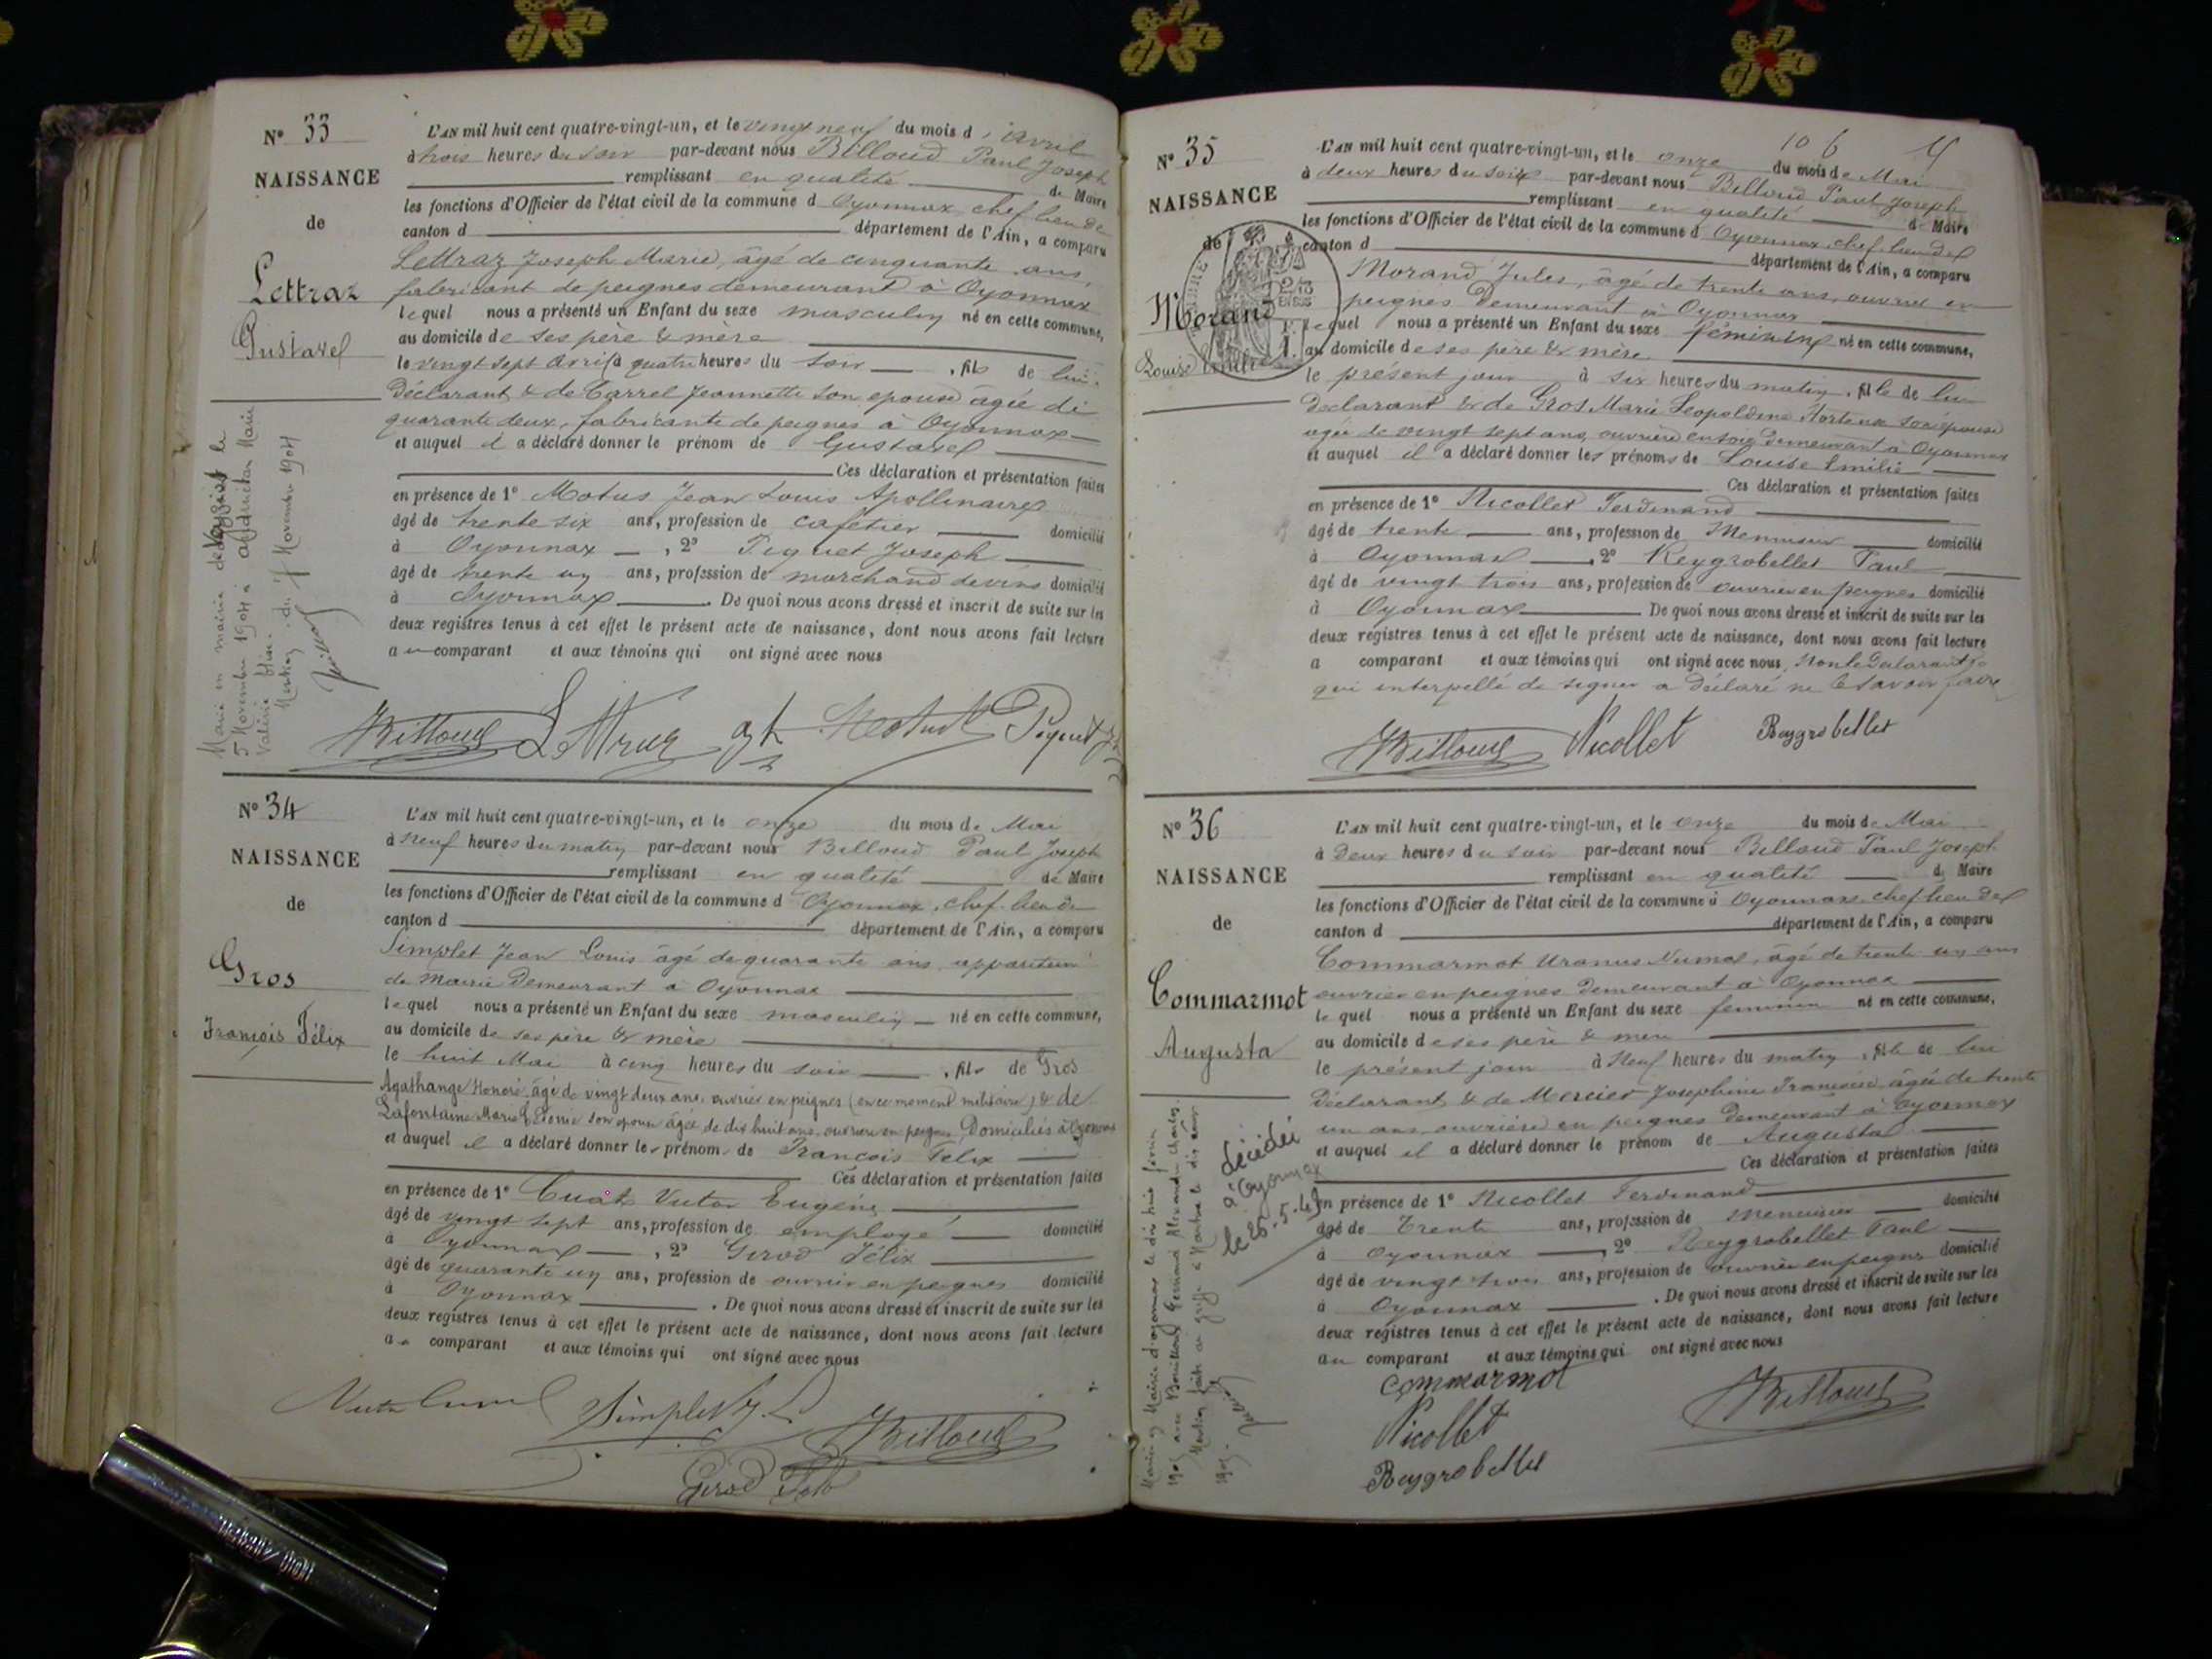 N° 33
NAISSANCE
de
Lettraz
Gustave
L'AN mil huit cent quatre-vingt-un, et le vingt neuf du mois d'avril
à trois heures du soir par-devant nous Billoud Paul Joseph
remplissant en qualité de Maire
les fonctions d'Officier de l'état civil de la commune d Oyonnax chef lieu de
canton d département de l'Ain, a comparu
Lettraz Joseph Marie, âgé de cinquante ans,
fabricant de peignes demeurant à Oyonnax
lequel nous a présenté un Enfant du sexe masculin né en cette commune,
au domicile de ses père & mère
le vingt sept avril à quatre heures du soir, fils de lui
déclarant & de Carrel Jeannette son épouse âgée de
quarante deux, fabricante de peignes à Oyonnax
et auquel il a déclaré donner le prénom de Gustave
Ces déclaration et présentation faites
en présence de 1° Motus Jean Louis Apollinaire
âgé de trente six ans, profession de cafetier domicilié
à Oyonnax, 2° Piquet Joseph
âgé de trente un ans, profession de marchand de vins domicilié
à Oyonnax. De quoi nous avons dressé et inscrit de suite sur les
deux registres tenus à cet effet le présent acte de naissance, dont nous avons fait lecture
au comparant et aux témoins qui ont signé avec nous
Marié en mairie de Veyziat le
5 Novembre 1904 à Marie
Mention du Novembre 1904
Billoud Lettraz Piquet
N° 34
NAISSANCE
de
Gros
François Félix
L'AN mil huit cent quatre-vingt-un, et le onze du mois de Mai
à neuf heures du matin par-devant nous Billoud Paul Joseph
remplissant en qualité de Maire
les fonctions d'Officier de l'état civil de la commune d Oyonnax, chef lieu de
canton d département de l'Ain, a comparu
Simplet Jean Louis âgé de quarante ans appariteur
de Mairie demeurant à Oyonnax
lequel nous a présenté un Enfant du sexe masculin né en cette commune,
au domicile de ses père & mère
le huit Mai à cinq heures du soir, fils de Gros
Agathange Honoré, âgé de vingt deux ans, ouvrier en peignes (en ce moment militaire) & de
Lafontaine Marie son épouse âgée de dix huit ans, ouvrière en peignes, domiciliés à Oyonnax
et auquel il a déclaré donner les prénoms de François Félix
Ces déclaration et présentation faites
en présence de 1° Victor Eugène
âgé de vingt sept ans, profession de employé domicilié
à Oyonnax, 2° Girod Félix
âgé de quarante un ans, profession de ouvrier en peignes domicilié
à Oyonnax. De quoi nous avons dressé et inscrit de suite sur les
deux registres tenus à cet effet le présent acte de naissance, dont nous avons fait lecture
au comparant et aux témoins qui ont signé avec nous
Simplet J. L. Billoud
Girod
N° 35
NAISSANCE
de
Morand
Louise Emilie
106
L'AN mil huit cent quatre-vingt-un, et le onze du mois de Mai
à deux heures du soir par-devant nous Billoud Paul Joseph
remplissant en qualité de Maire
les fonctions d'Officier de l'état civil de la commune d Oyonnax, chef lieu de
canton d département de l'Ain, a comparu
Morand Jules, âgé de trente ans, ouvrier en
peignes demeurant à Oyonnax
lequel nous a présenté un Enfant du sexe féminin né en cette commune,
au domicile de ses père & mère
le présent jour à six heures du matin, fille de lui
déclarant & de Gros Marie Léopoldine Hortense son épouse
âgée de vingt sept ans, ouvrière en soie demeurant à Oyonnax
et auquel il a déclaré donner les prénoms de Louise Emilie
Ces déclaration et présentation faites
en présence de 1° Nicollet Ferdinand
âgé de trente ans, profession de Menuisier domicilié
à Oyonnax, 2° Reygrobellet Paul
âgé de vingt trois ans, profession de ouvrier en peignes domicilié
à Oyonnax De quoi nous avons dressé et inscrit de suite sur les
deux registres tenus à cet effet le présent acte de naissance, dont nous avons fait lecture
a comparant et aux témoins qui ont signé avec nous, non le déclarant
qui interpellé de signer a déclaré ne le savoir faire
Billoud Nicollet Reygrobellet
N° 36
NAISSANCE
de
Commarmot
Augusta
L'AN mil huit cent quatre-vingt-un, et le onze du mois de Mai
à deux heures du soir par-devant nous Billoud Paul Joseph
remplissant en qualité de Maire
les fonctions d'Officier de l'état civil de la commune d Oyonnax chef lieu de
canton d département de l'Ain, a comparu
Commarmot Uranus Numa, âgé de trente un ans
ouvrier en peignes demeurant à Oyonnax
lequel nous a présenté un Enfant du sexe féminin né en cette commune,
au domicile de ses père & mère
le présent jour à neuf heures du matin, fille de lui
déclarant & de Mercier Joséphine Françoise âgée de trente
un ans, ouvrière en peignes demeurant à Oyonnax
et auquel il a déclaré donner le prénom de Augusta
Ces déclaration et présentation faites
en présence de 1° Nicollet Ferdinand
âgé de trente ans, profession de menuisier domicilié
à Oyonnax, 2° Reygrobellet Paul
âgé de vingt trois ans, profession de ouvrier en peignes domicilié
à Oyonnax. De quoi nous avons dressé et inscrit de suite sur les
deux registres tenus à cet effet le présent acte de naissance, dont nous avons fait lecture
au comparant et aux témoins qui ont signé avec nous
Mariée en Mairie d'Oyonnax le dix huit février
1905 avec Alexandre Charles.
Mention faite au greffe à Nantua le dix
1905.
décédée
à Oyonnax
le 26.5.49
Commarmot
Billoud
Nicollet
Reygrobellet